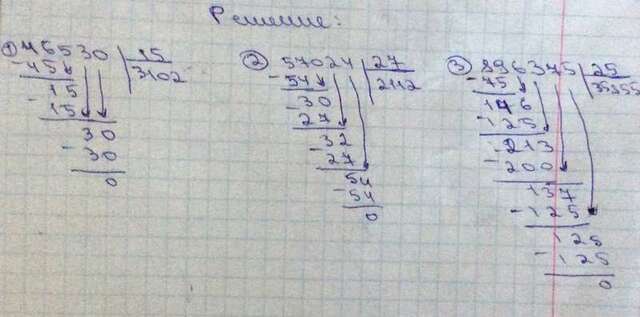 Решение:
① 46530 | 15
- 45 3102
15
- 15
30
- 30
0
② 57024 | 27
- 54 2112
30
- 27
32
- 27
54
- 54
0
③ 896375 | 25
- 75 35855
146
- 125
213
- 200
137
- 125
125
- 125
0